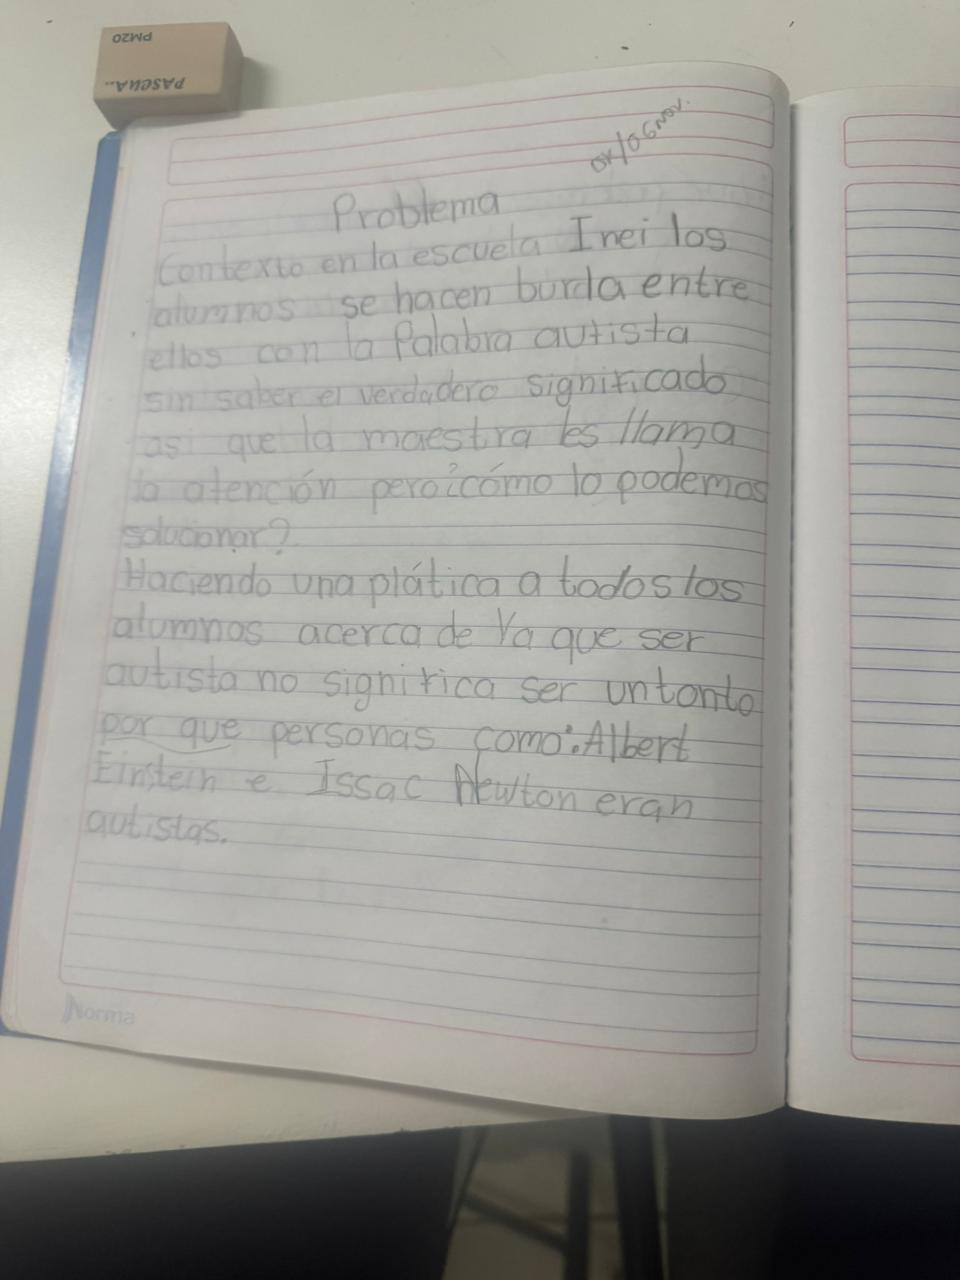 PM20
PASCUA..
OK/06 Nov.
Problema
Contexto en la escuela Inei los
alumnos se hacen burla entre
ellos con la Palabra autista
sin saber el verdadero significado
asi que la maestra les llama
la atención pero ¿cómo lo podemos
solucionar?
Haciendo una plática a todos los
alumnos acerca de Ya que ser
autista no significa ser un tonto
por que personas como: Albert
Einstein e Issac Newton eran
autistas.
Norma